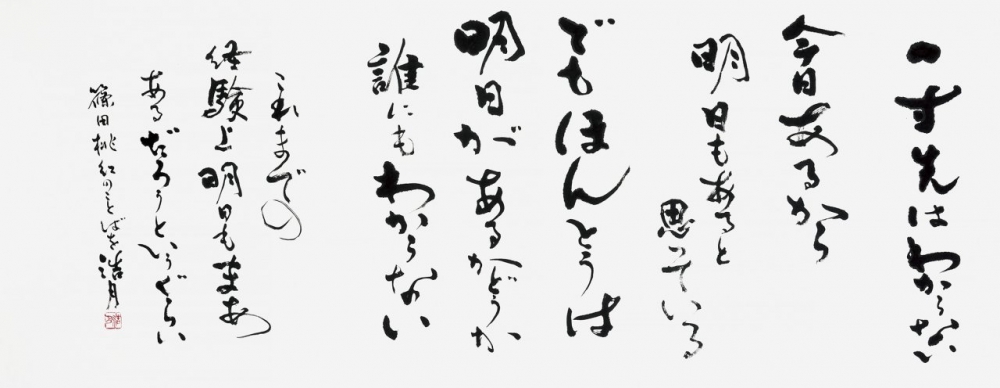 一寸先はわからない
今日あるから
明日もあると
思っている
でもほんとうは
明日があるかどうか
誰にもわからない
これまでの
経験上明日もまあ
あるだろうというぐらい
篠田桃紅のことばを 浩月